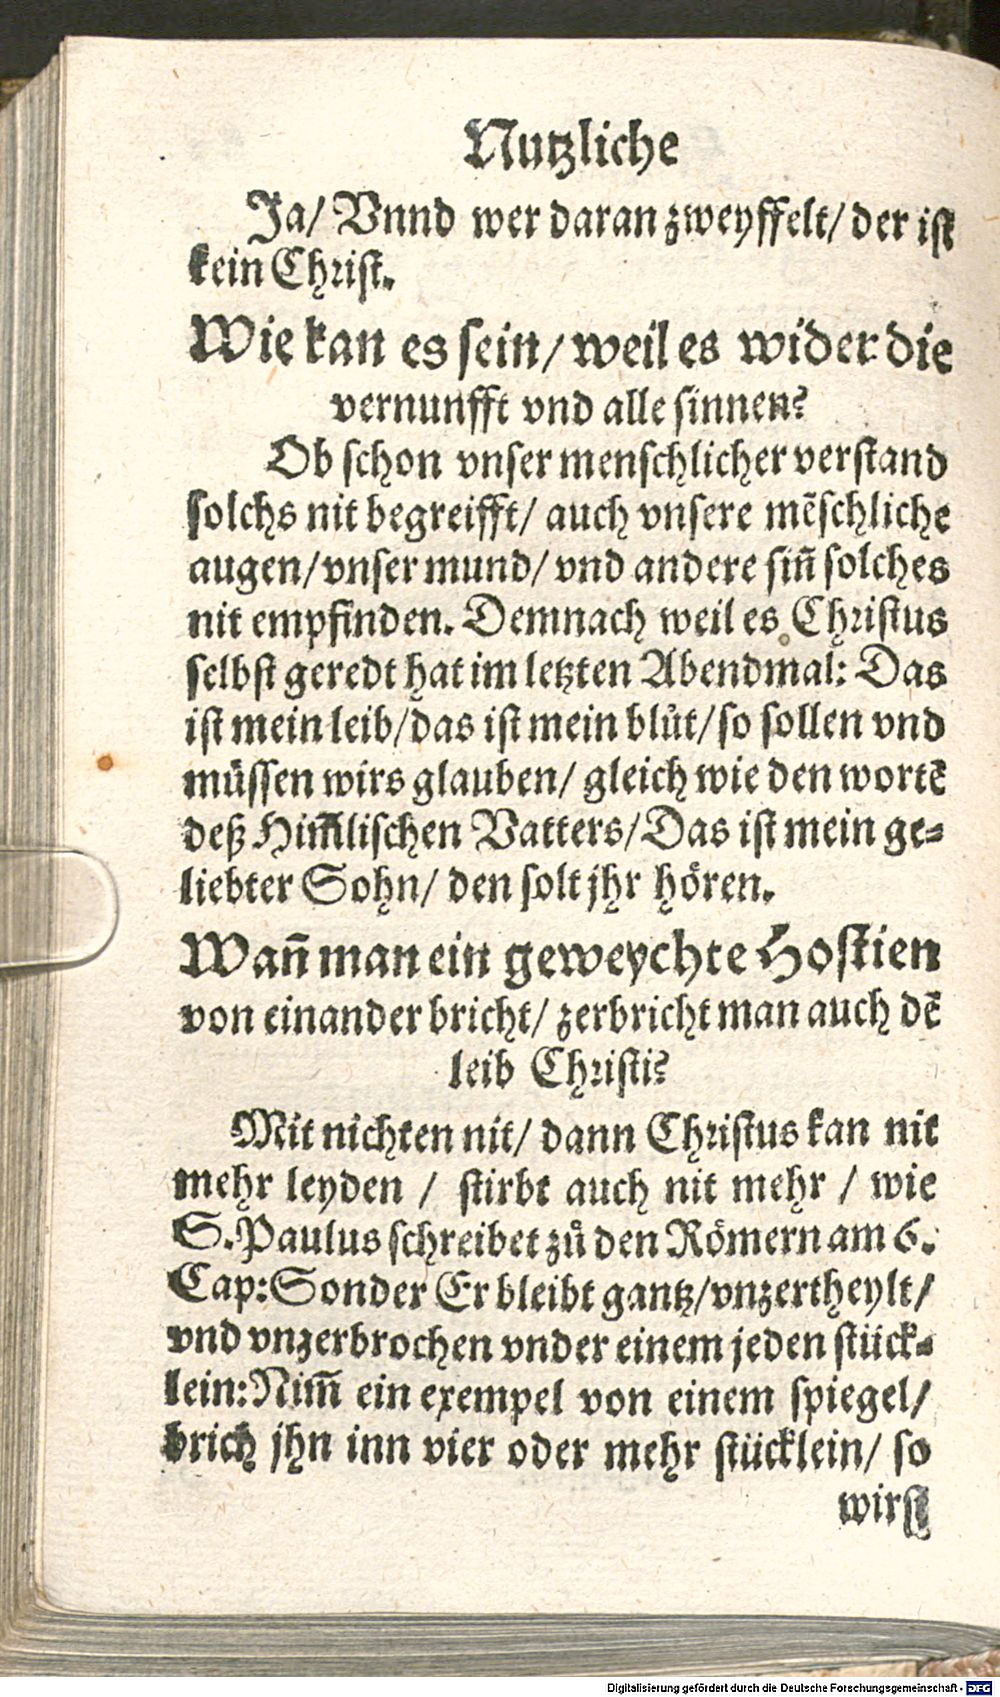 Nutzliche
Ja/ Vnnd wer daran zweyffelt/ der ist
kein Christ.
Wie kan es sein/ weil es wider die
vernunfft vnd alle sinnen?
Ob schon vnser menschlicher verstand
solchs nit begreifft/ auch vnsere mẽschliche
augen/ vnser mund/ vnd andere siñ solches
nit empfinden. Demnach weil es Christus
selbst geredt hat im letzten Abendmal: Das
ist mein leib/ das ist mein blůt/ so sollen vnd
müssen wirs glauben/ gleich wie den wortẽ
deß Him̃lischen Vatters/ Das ist mein ge⸗
liebter Sohn/ den solt jhr hören.
Wañ man ein geweychte Hostien
von einander bricht/ zerbricht man auch dẽ
leib Christi?
Mit nichten nit/ dann Christus kan nit
mehr leyden / stirbt auch nit mehr / wie
S. Paulus schreibet zů den Römern am 6.
Cap: Sonder Er bleibt gantz/ vnzertheylt/
vnd vnzerbrochen vnder einem jeden stück⸗
lein: Nim̃ ein exempel von einem spiegel/
brich jhn inn vier oder mehr stücklein/ so
wirst
Digitalisierung gefördert durch die Deutsche Forschungsgemeinschaft - DFG